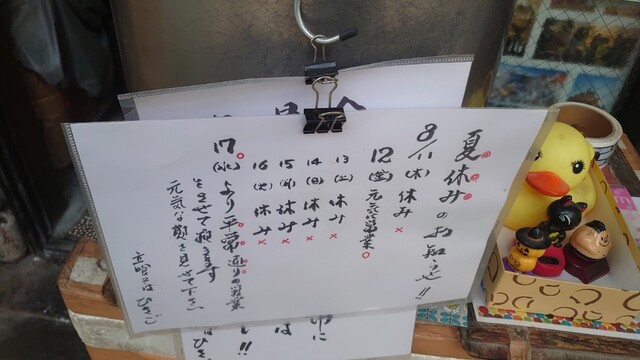 夏休みのお知らせ!!
8/11(木) 休み ×
12(金) 元気に営業○
13(土) 休み ×
14(日) 休み ×
15(月) 休み ×
16(火) 休み ×
17(水)より平常通りの営業
をさせて頂きます
元気な顔を見せて下さい